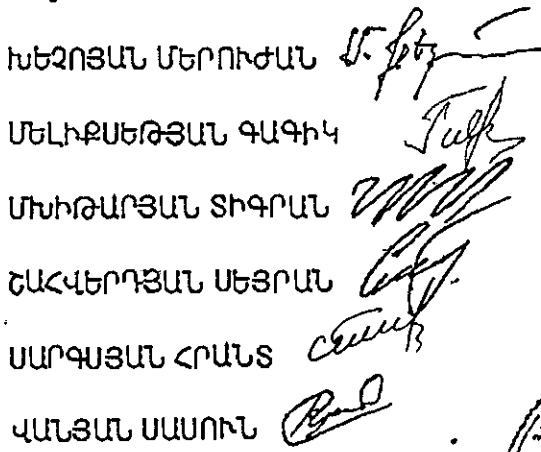 ԽԵՉՈՅԱՆ ՄԵՐՈՒԺԱՆ
ՄԵԼԻՔՍԵԹՅԱՆ ԳԱԳԻԿ
ՄԽԻԹԱՐՅԱՆ ՏԻԳՐԱՆ
ՇԱՀՎԵՐԴՅԱՆ ՍԵՅՐԱՆ
ՍԱՐԳՍՅԱՆ ՀՐԱՆՏ
ՎԱՆՅԱՆ ՍԱՍՈՒՆ